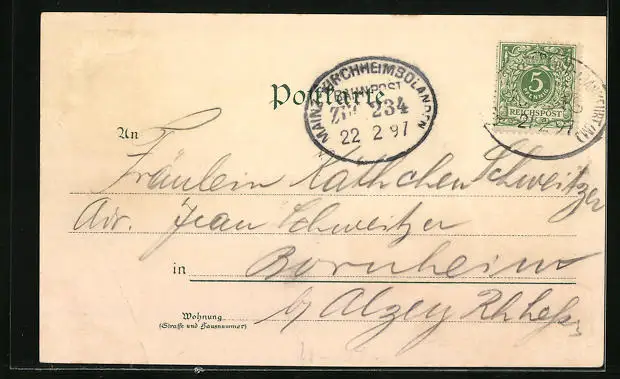 Postkarte
MAINZ-KIRCHHEIMBOLANDEN
BAHNPOST
ZUG 234
22 2 97
5
REICHSPOST
An
Fräulein Käthchen Schweitzer
Adr. Jean Schweitzer
in
Bornheim
b/ Alzey Rhhess
Wohnung
(Straße und Hausnummer)